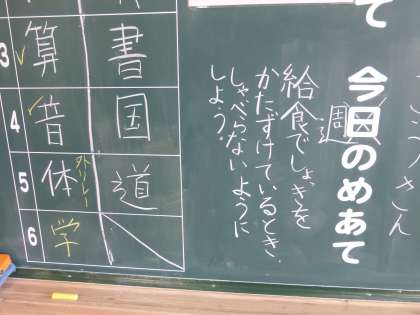 さん
て 今日のめあて
週
給食でしょっきを
かたずけているとき、
しゃべらないように
しよう。
3 算 書
4 音 国
5 体 外リレー 道
6 学